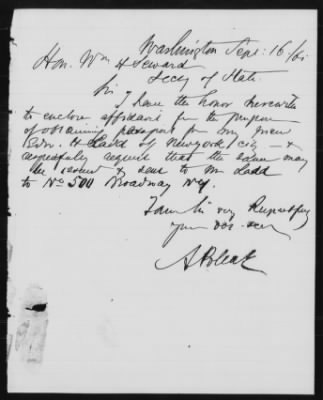 Washington Sept: 16/61
Hon. Wm H Seward
Secy of State
Sir I have the honor herewith
to enclose affidavit for the purpose
of obtaining passport for my friend
Edw. H Ladd of New York city - &
respectfully request that the same may
be issued & sent to Mr Ladd
to No 500 Broadway NY.
I am Sir very Respectfully
your obt. ser